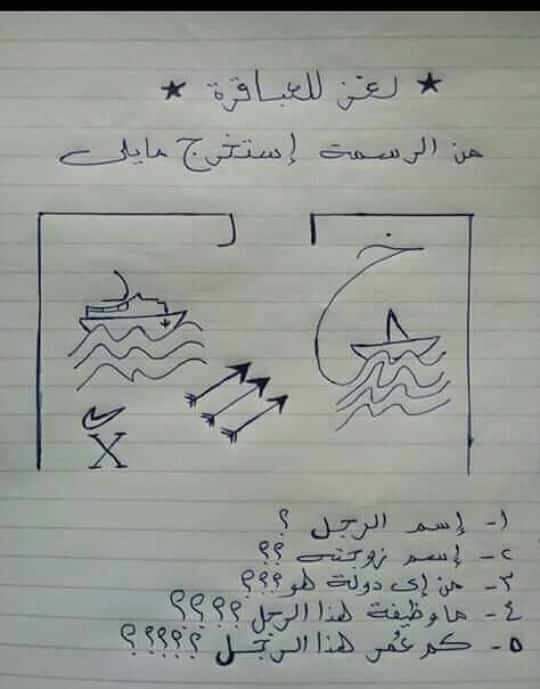 ★ لغز للعباقرة ★
من الرسمة إستخرج مايلى
خ
X
١- إسم الرجل ؟
٢- إسم زوجته ؟؟
٣- من إى دولة هو؟؟؟
٤- ما وظيفة هذا الرجل ؟؟؟؟
٥- كم عُمر هذا الرجل ؟؟؟؟؟